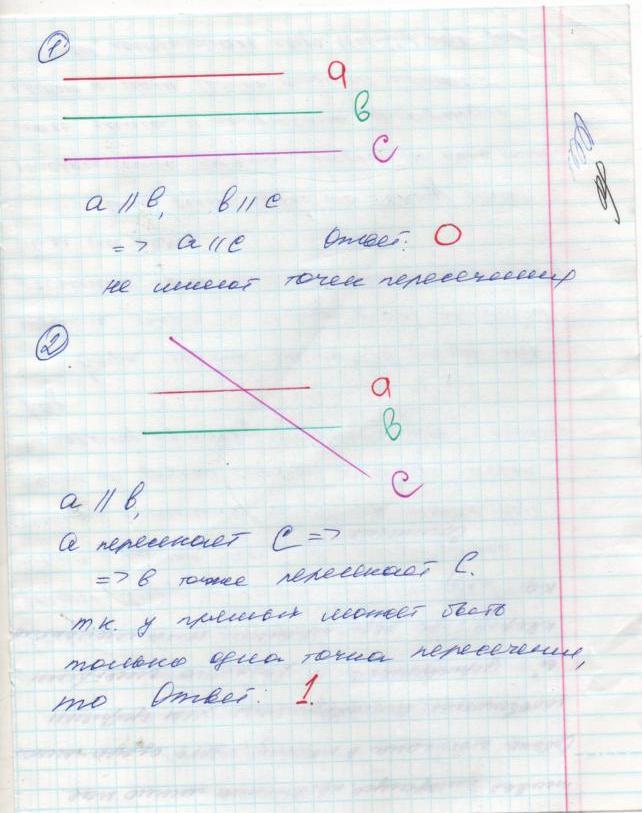 1
a
b
c
a || b, b || c
=> a || c Ответ: 0
не имеют точек пересечения
2
a
b
c
a || b,
a пересекает c =>
=> b тоже пересекает c.
т.к. у прямых может быть
только одна точка пересечения,
то Ответ: 1.